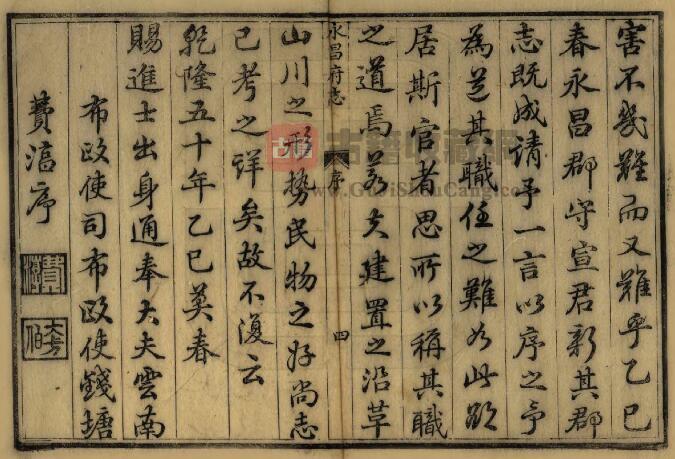 害不幾難而又難乎乙巳
春永昌郡守宣君新其郡
志既成請予一言以序之予
為道其職任之難如此欲
居斯官者思所以稱其職
之道焉若夫建置之沿革
永昌府志 序 四
山川之形勢民物之好尚志
已考之詳矣故不復云
乾隆五十年乙巳莫春
賜進士出身通奉大夫雲南
布政使司布政使錢塘
費淳序
費淳
古籍收藏网
www.GuJiShouCang.com